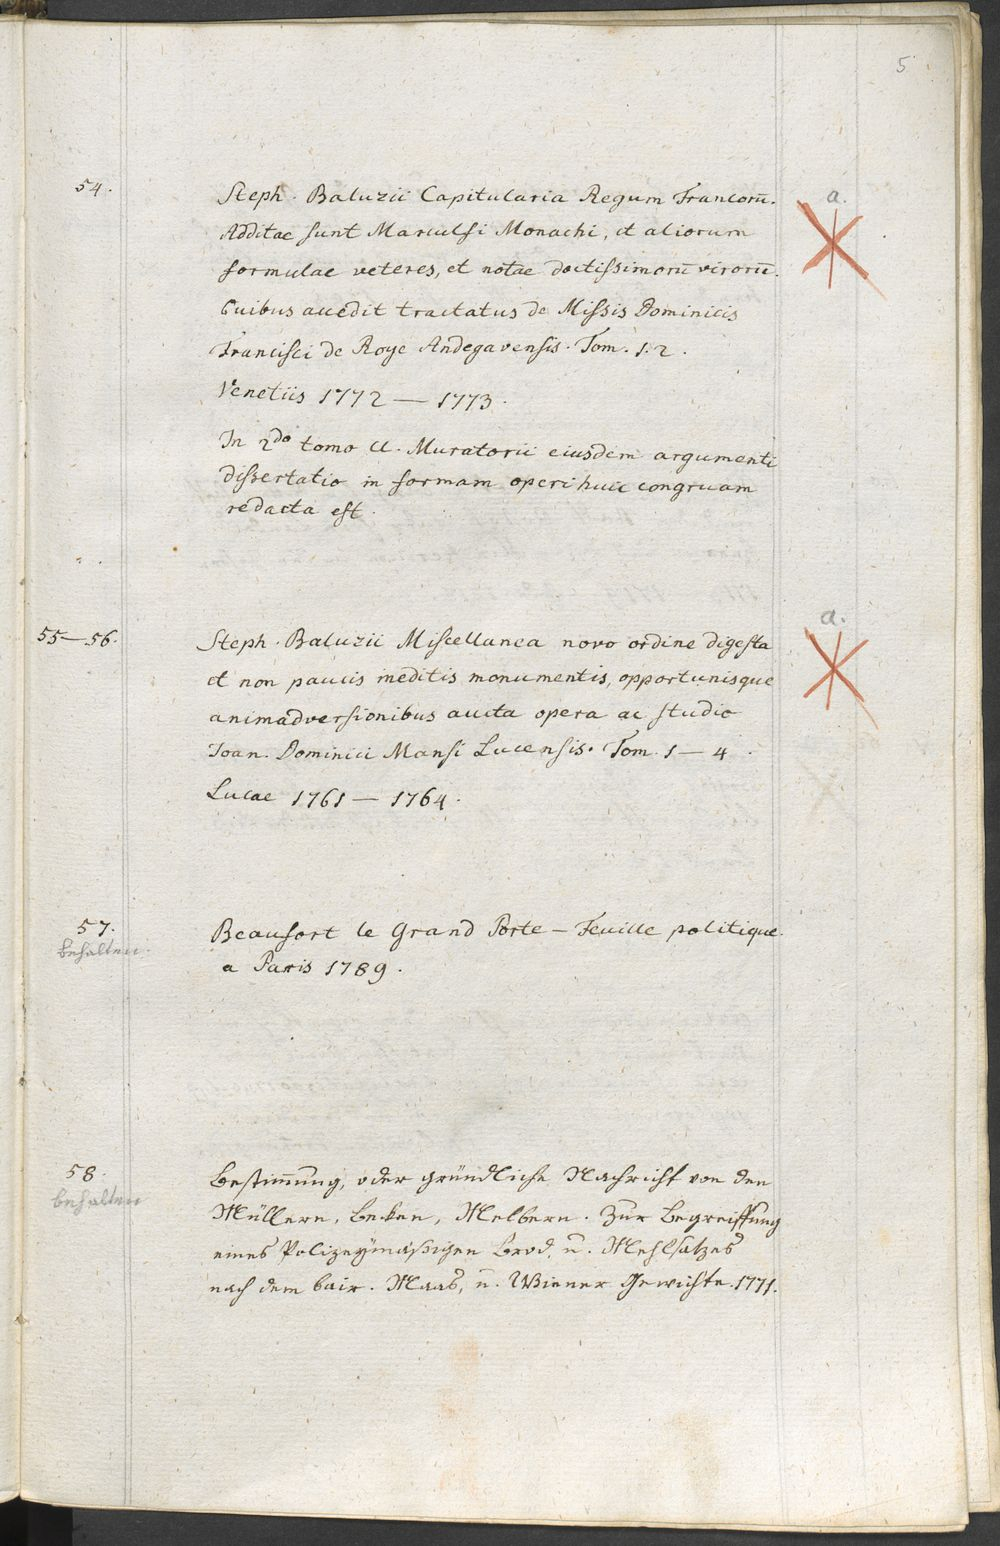 5
54.
Steph. Baluzii Capitularia Regum Francorū.
Additae sunt Marculfi Monachi, et aliorum
formulae veteres, et notae doctissimorū virorū.
Cuibus accedit tractatus de Missis Dominicis
Francisci de Roye Andegavensis. Tom. 1. 2.
Venetiis 1772 — 1773.
In 2do tomo Cl. Muratorii eiusdem argumenti
dissertatio in formam operi huic congruam
redacta est.
a.
55—56.
Steph. Baluzii Miscellanea novo ordine digesta
et non paucis ineditis monumentis, opportunisque
animadversionibus aucta opera ac studio
Ioan. Dominici Mansi Lucensis. Tom. 1 — 4.
Lucae 1761 — 1764.
a.
57.
behalten.
Beaufort le Grand Porte-Feuille politique.
a Paris 1789.
58.
behalten
Bestim̄ung, oder gründliche Nachricht von den
Müllern, Becken, Melbern. Zur Begreiffung
eines Polizeymässigen Brod, u. Mehlsatzes
nach dem bair. Maas, u. Wiener Gewichte. 1771.